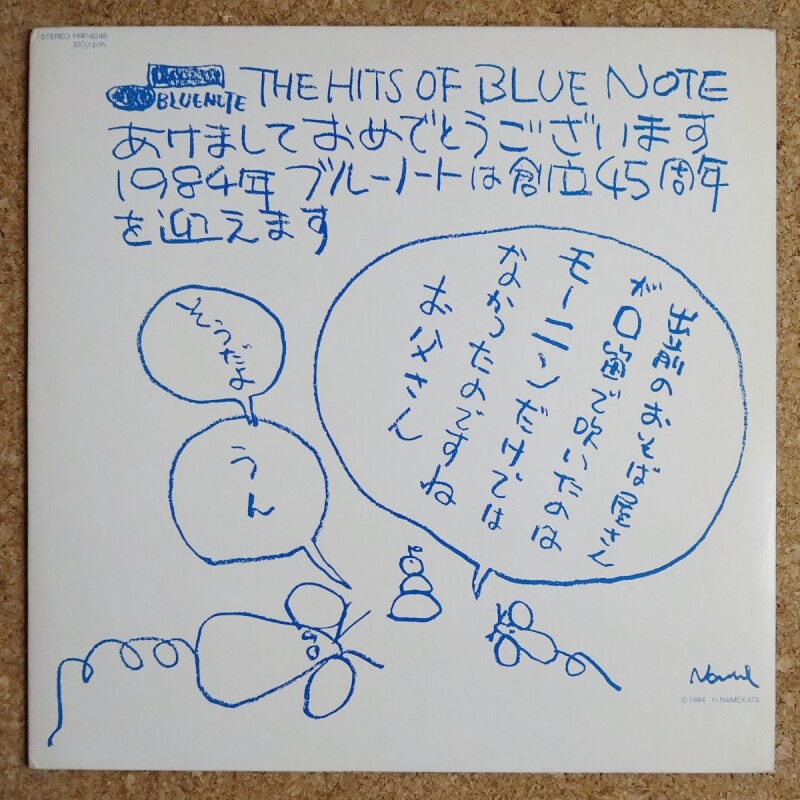 STEREO PRP-8248
33 1/3 r.p.m.
BLUE NOTE THE HITS OF BLUE NOTE
あけましておめでとうございます
1984年 ブルーノートは創立45周年
を迎えます
出前のおそば屋さん
が口笛で吹いたのは
モーニンだけでは
なかったのですね
お父さん
そうだよ
うん
©1984 H.NAMEKATA